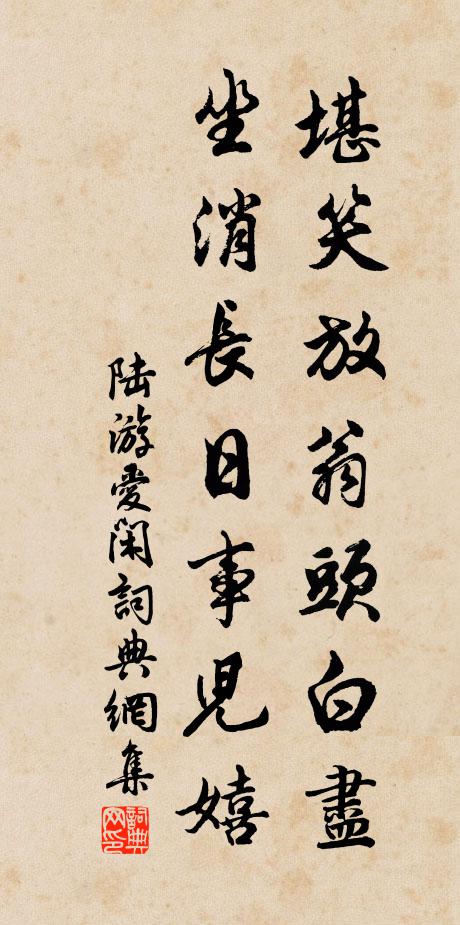 堪笑放翁頭白盡
坐消長日事兒嬉
陆游愛閑詞典網集
詞典
网印